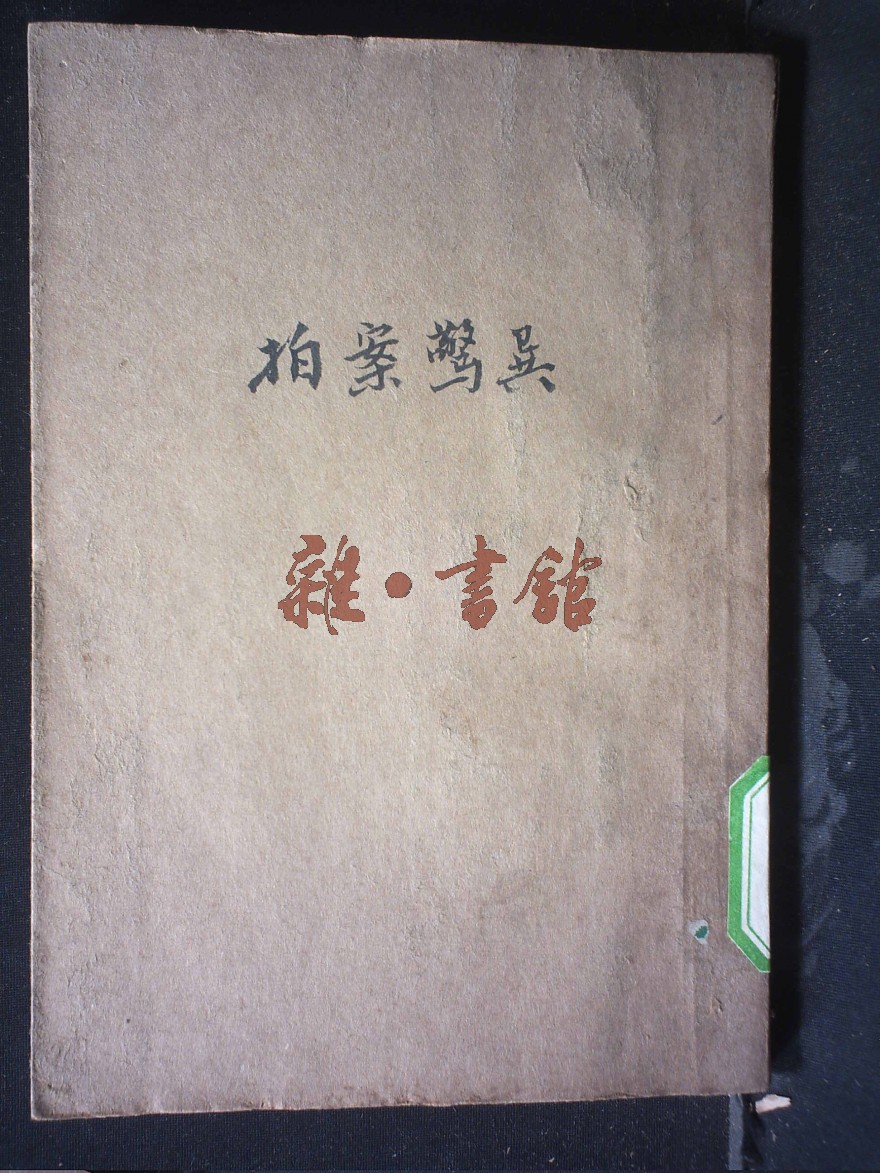 拍案驚異
雜·書館